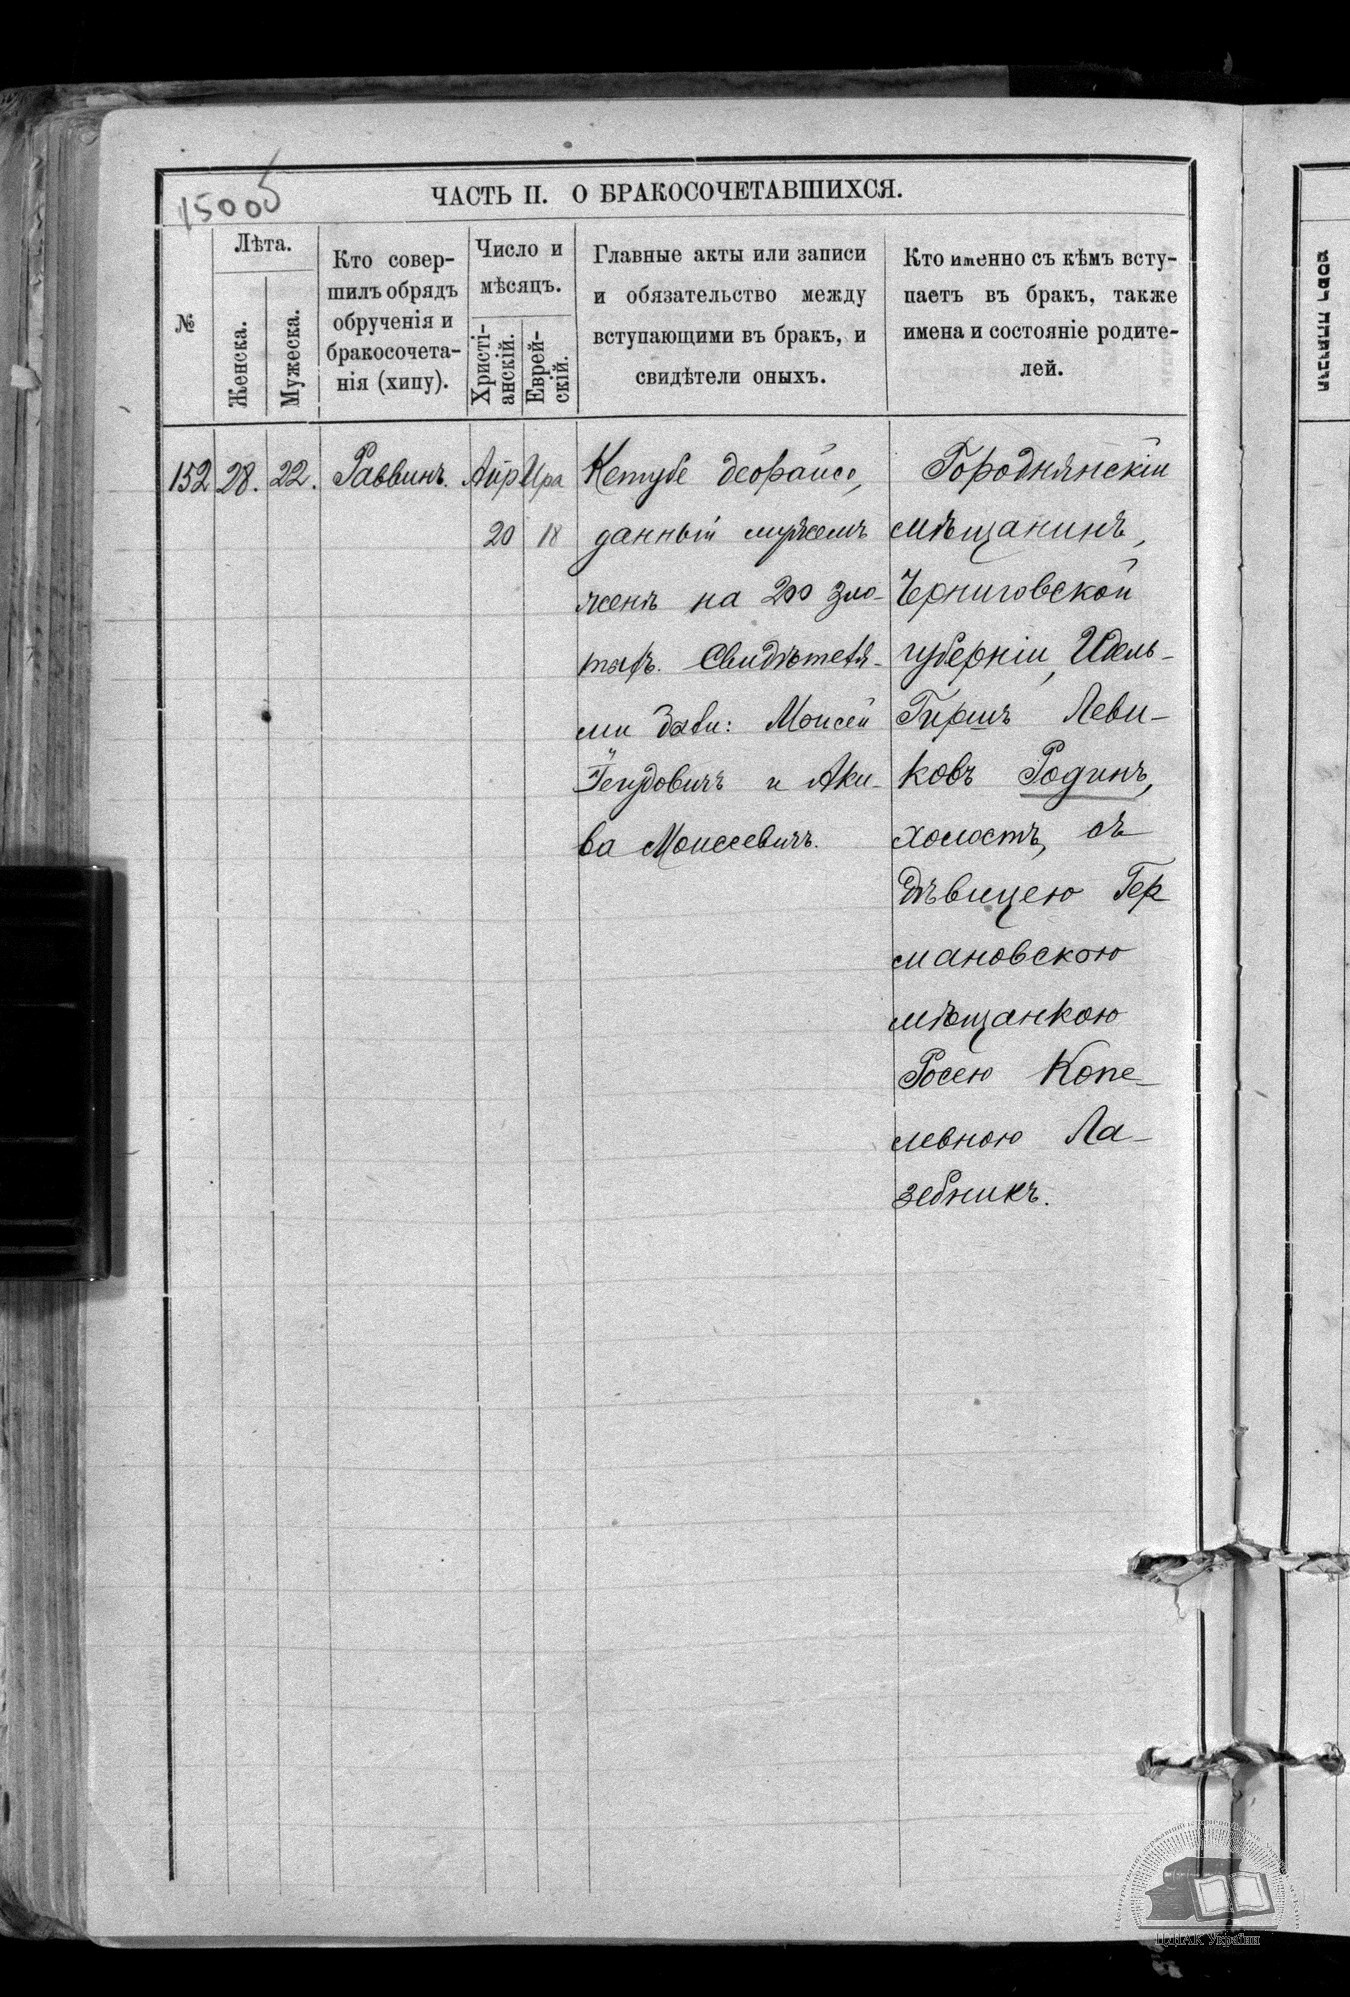 1500б
ЧАСТЬ II. О БРАКОСОЧЕТАВШИХСЯ.
№
Лѣта.
Женска.
Мужеска.
Кто совер-
шилъ обрядъ
обрученія и
бракосочета-
нія (хипу).
Число и
мѣсяцъ.
Христі-
анскій.
Еврей-
скій.
Главные акты или записи
и обязательство между
вступающими въ бракъ, и
свидѣтели оныхъ.
Кто именно съ кѣмъ всту-
паетъ въ бракъ, также
имена и состояніе родите-
лей.
152
28.
22.
Раввинъ.
Апр
20
Ира
18
Кетубе деорайсо,
данный мужемъ
женѣ на 200 зло-
тыхъ. Свидѣтеля-
ми были: Моисей
и Аки-
ва Моисеевичъ.
Городнянскій
мѣщанинъ,
Черниговской
губерніи, Идель-
Гиршъ Леви-
ковъ Родинъ,
холостъ, съ
дѣвицею Гер
мановскою
мѣщанкою
Росею Копе-
левною Ла-
зебникъ.
ЦДІАК України